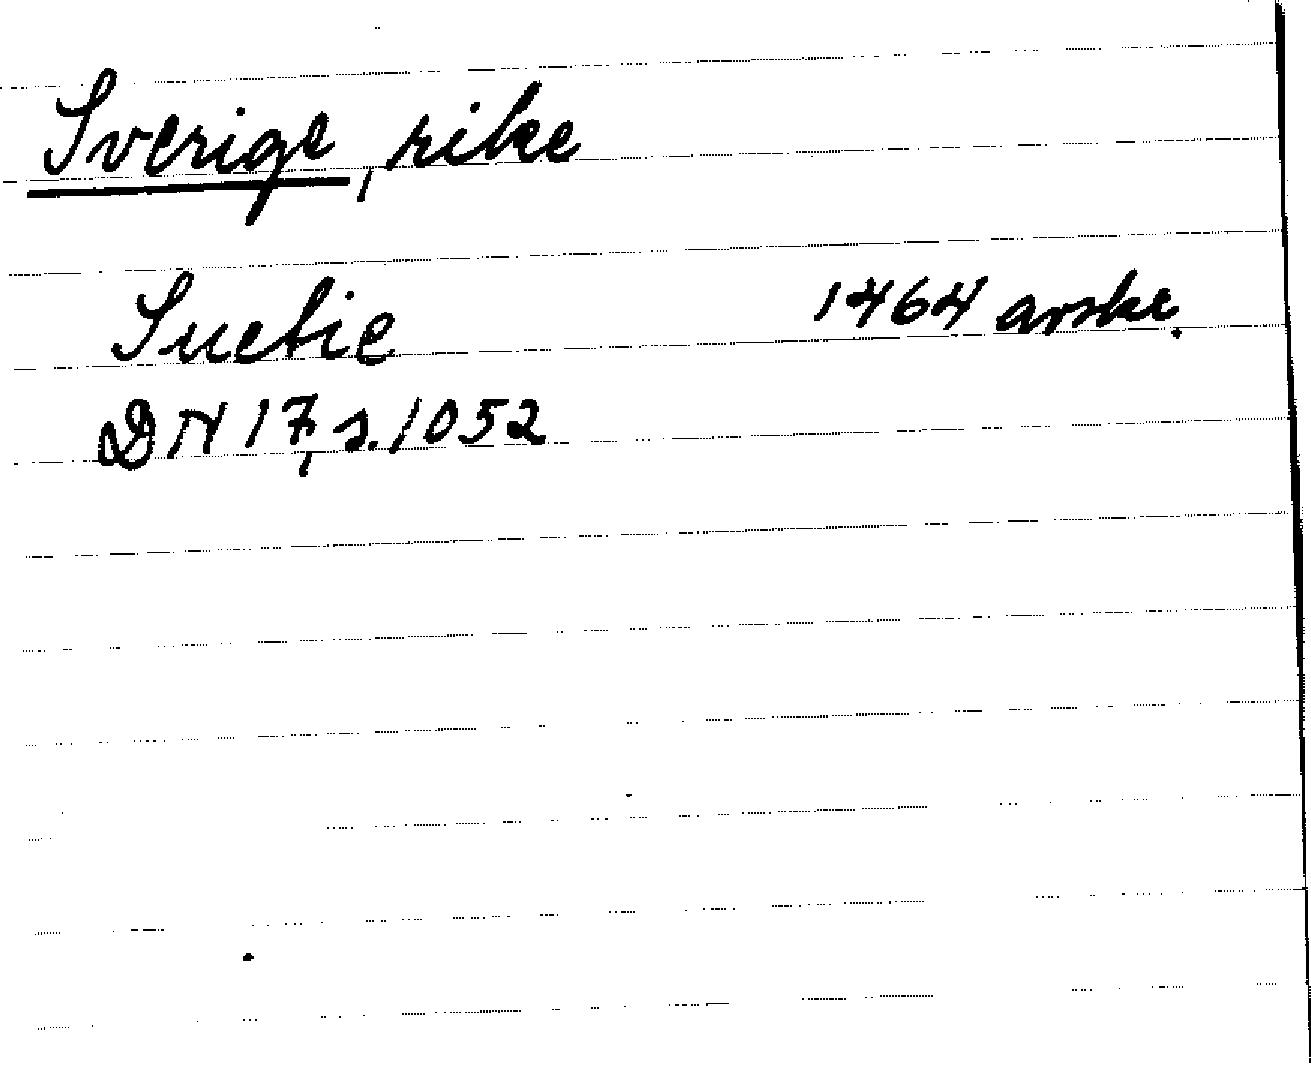 Sverige, rike
Suetie 1464 avskr.
DN 17, s. 1052